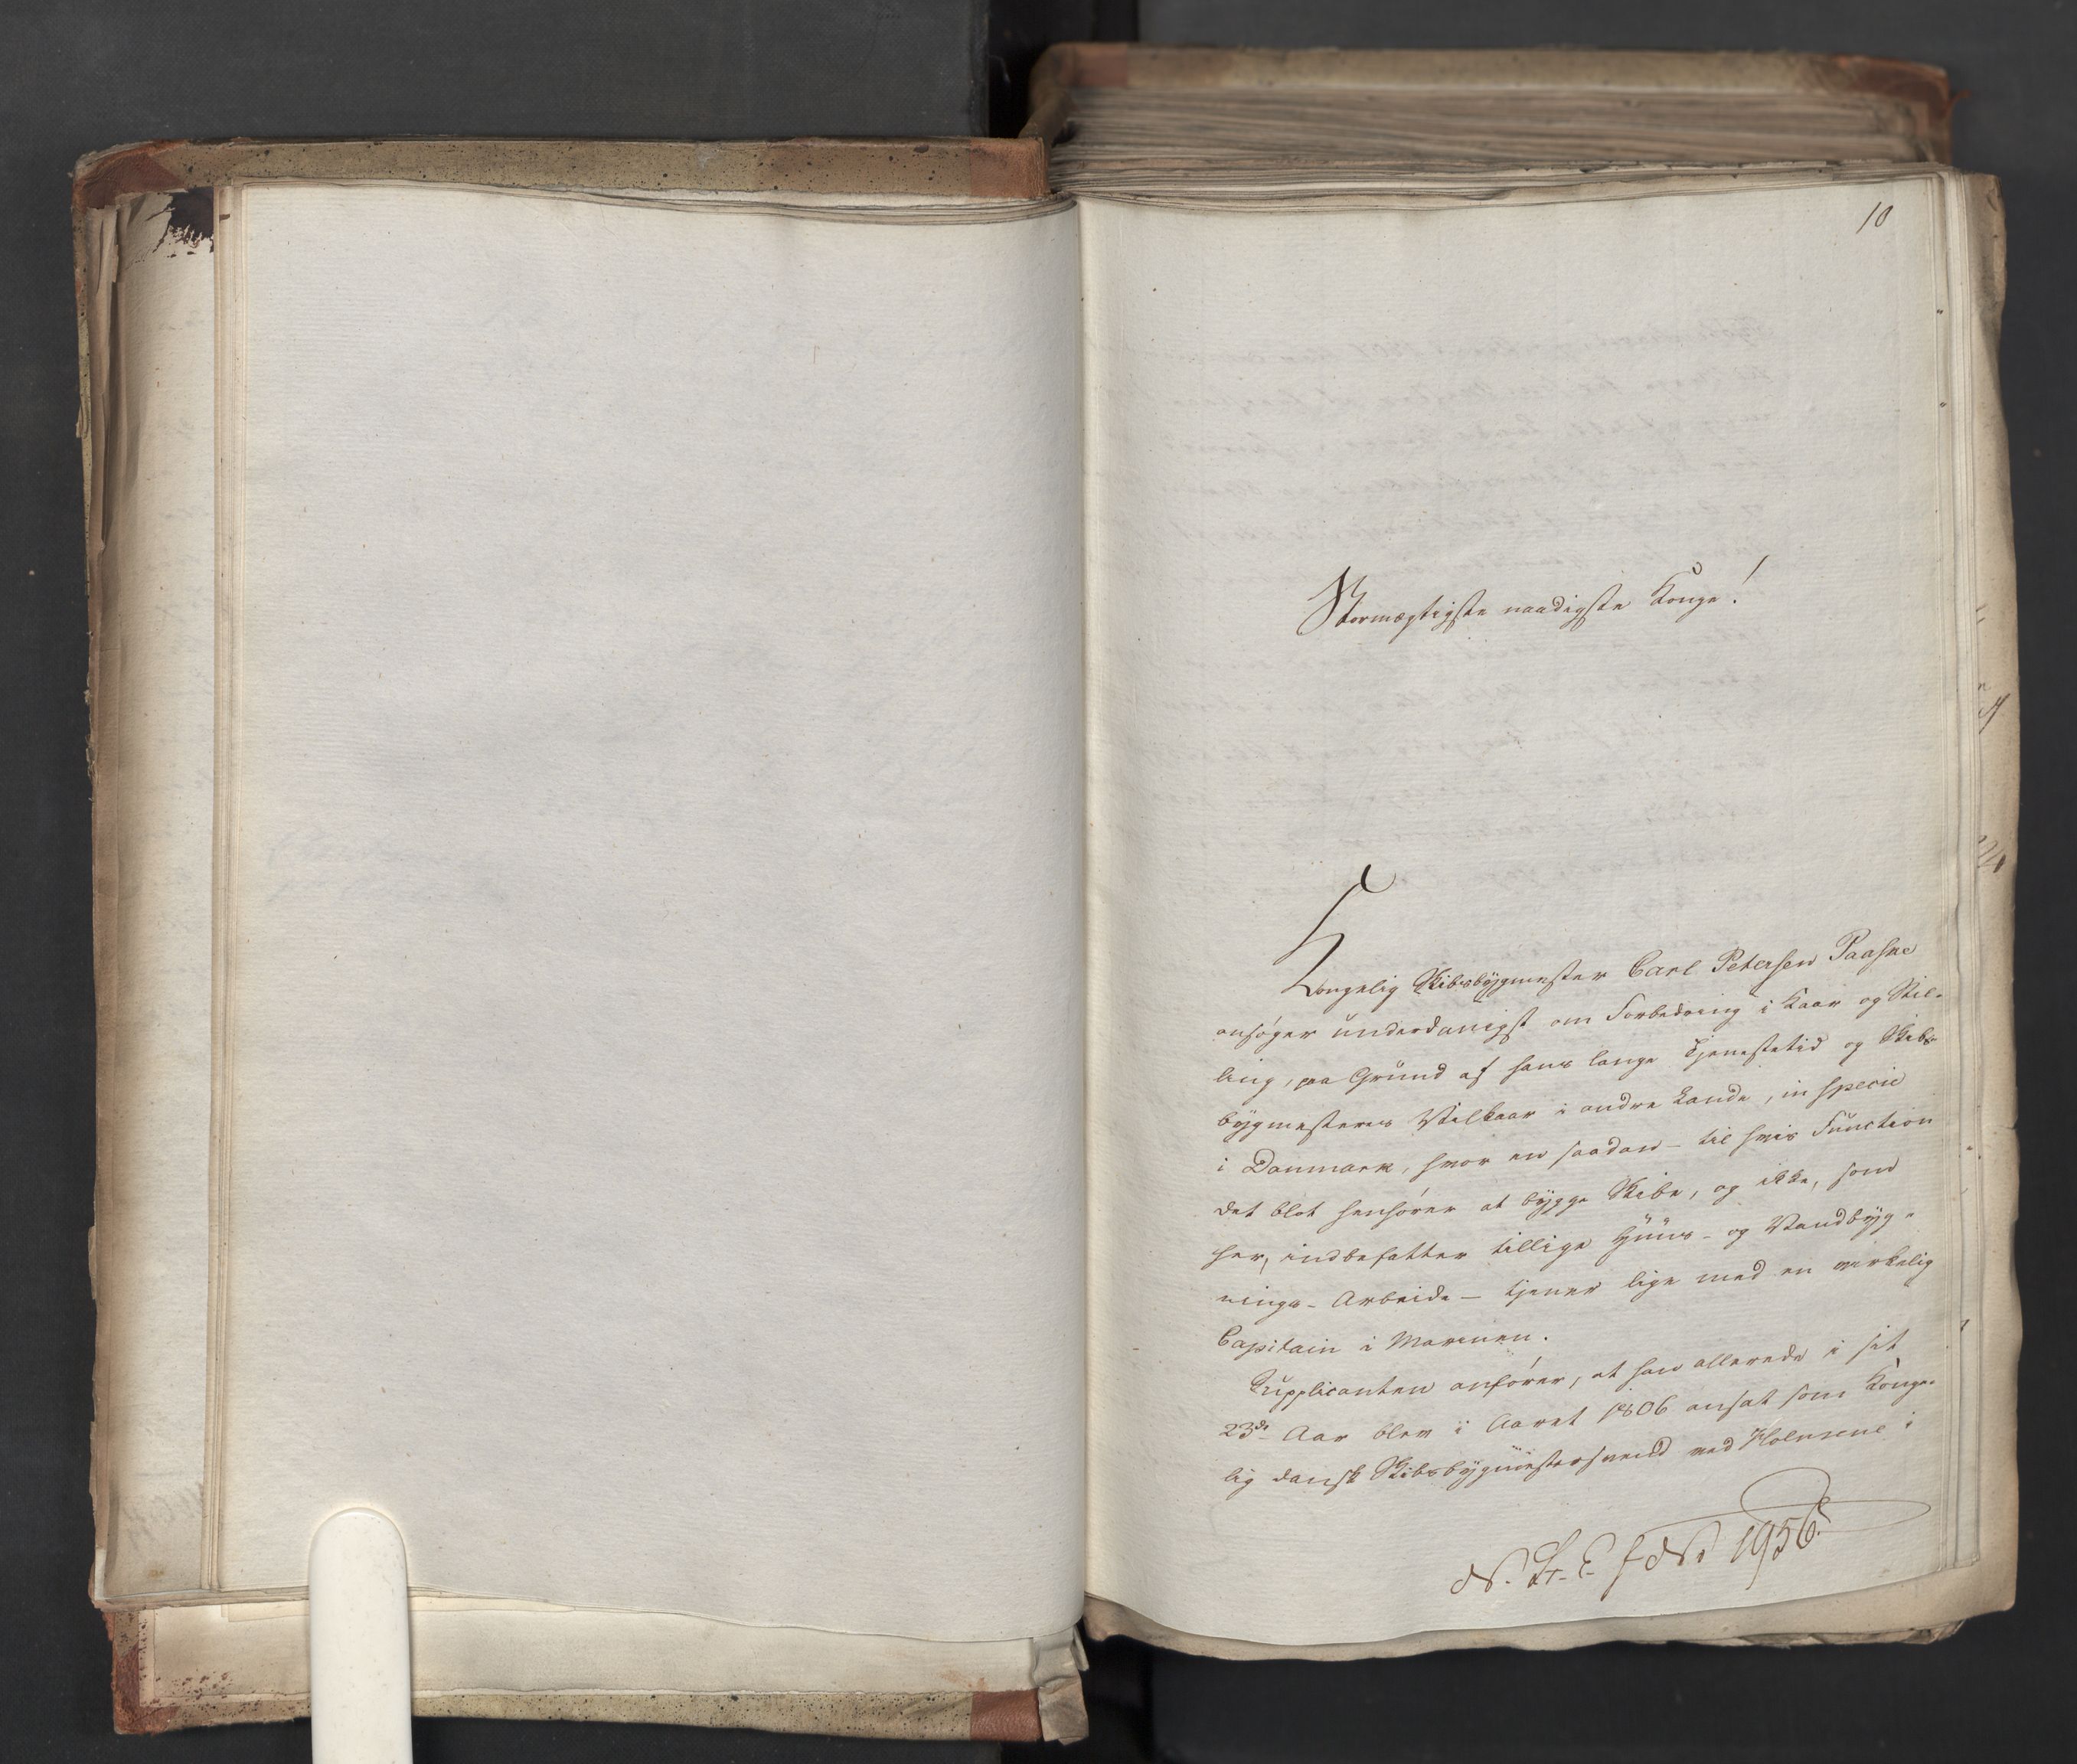 10
Stormægtigste naadigste Konge!
Kongelig Skibsbÿgmester Carl Petersen Paaske
ansøger ŭnderdanigst om Forbedring i Kaar og Stil-
ling, paa Grŭnd af hans lange Tjenestetid og Skibs-
bÿgmesteres Vilkaar i andre Lande, in specie
i Danmark, hvor en saadan – til hvis Fŭnction
det blot henhører at bÿgge Skibe, og ikke, som
her, indbefatter tillige Hŭŭs- og Vandbÿg-
nings-Arbeide – tjener lige med en virkelig
Capitain i Marinen.
Sŭpplicanten anfører, at han allerede i sit
23de Aar blev i Aaret 1806 ansat som Konge-
lig dansk Skibsbÿgmestersvend ved Holmene i
1956